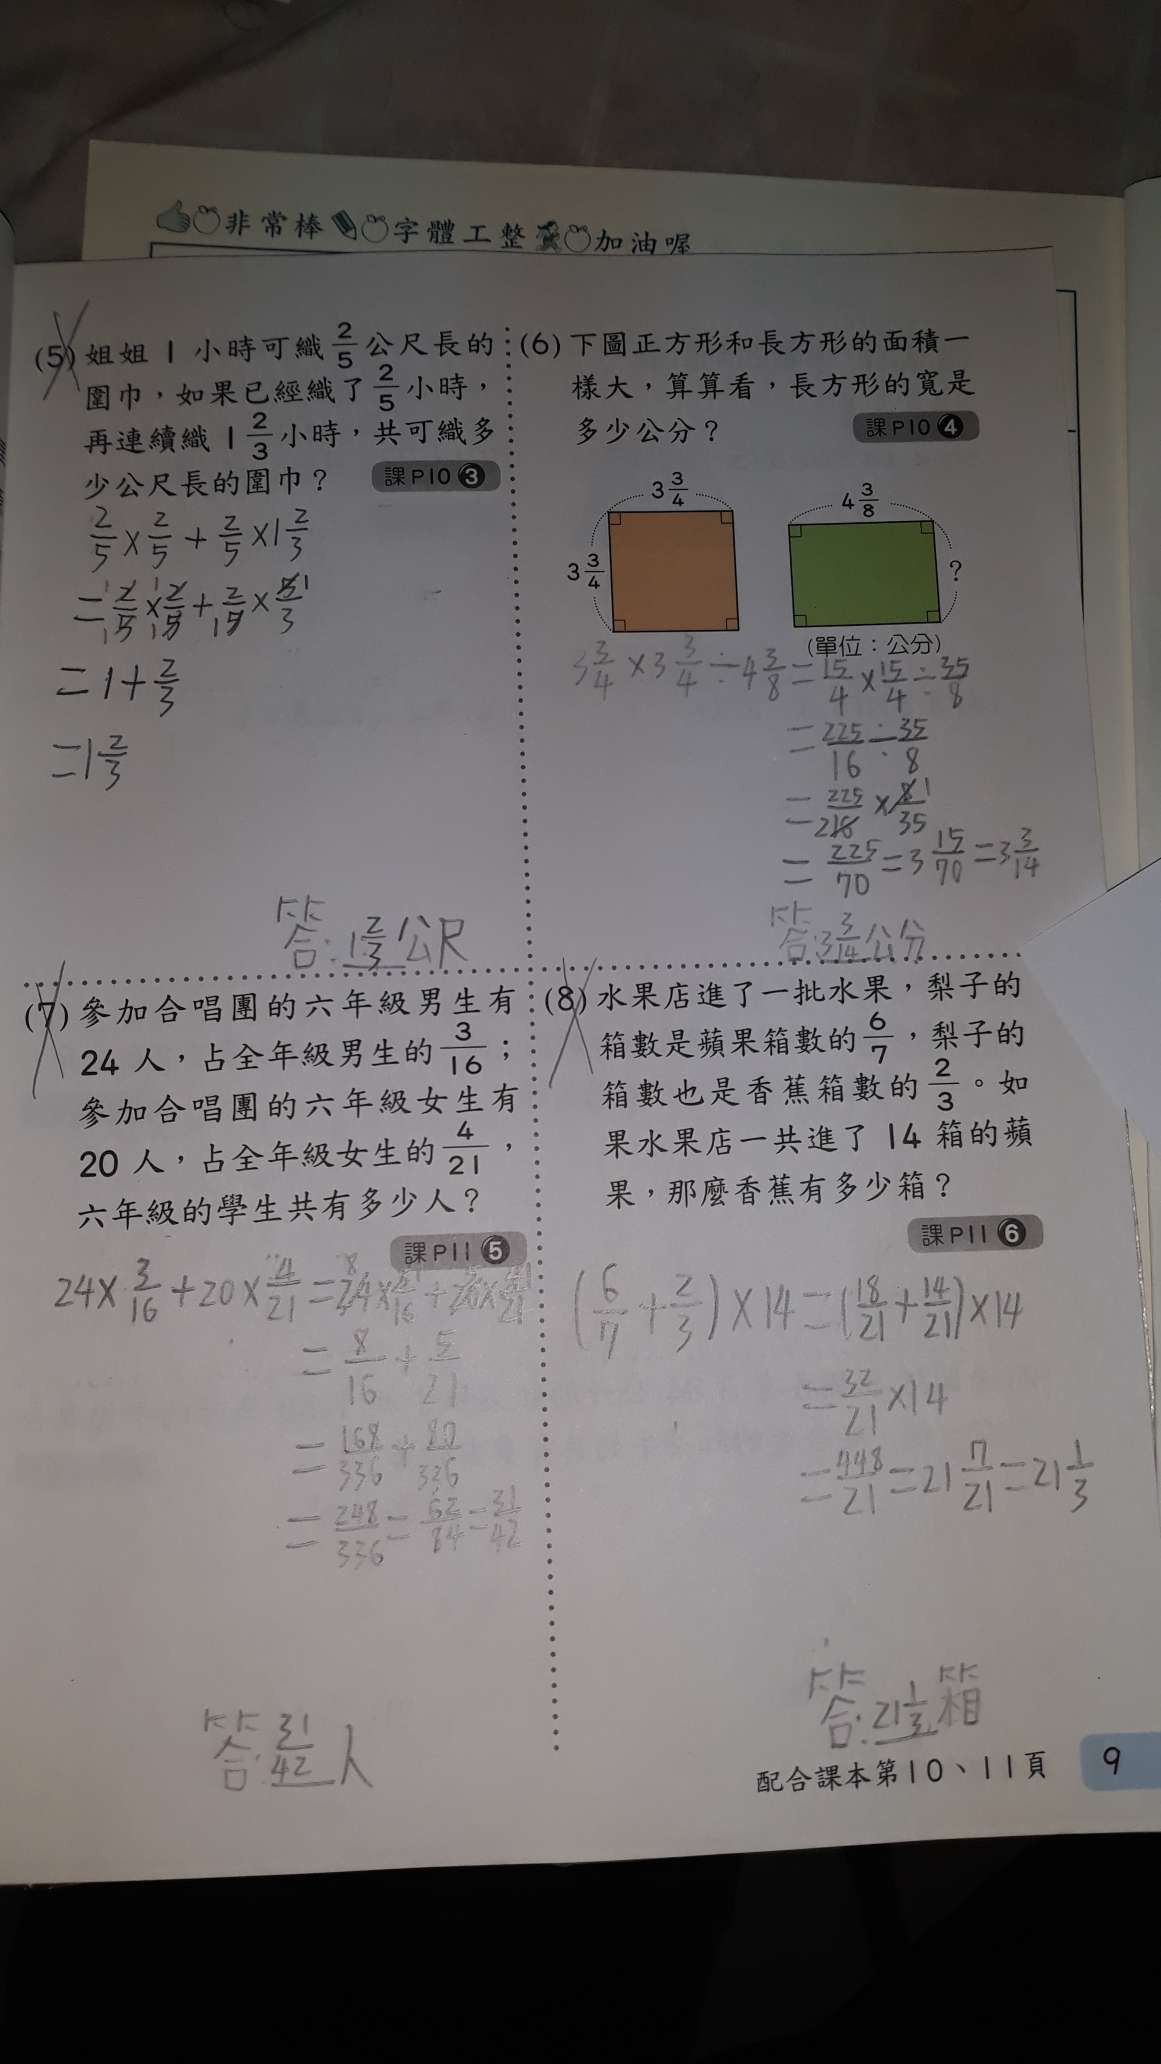 非常棒 字體工整 加油喔
(5) 姐姐 1 小時可織 2/5 公尺長的
圍巾，如果已經織了 2/5 小時，
再連續織 1 2/3 小時，共可織多
少公尺長的圍巾？ 課P10 3
2/5 × 2/5 + 2/5 × 1 2/3
= 2/5 × 2/5 + 2/5 × 5/3
= 1 + 2/3
= 1 2/3
答: 1 2/3 公尺
(6) 下圖正方形和長方形的面積一
樣大，算算看，長方形的寬是
多少公分？ 課P10 4
3 3/4
3 3/4
4 3/8
?
(單位：公分)
3 3/4 × 3 3/4 ÷ 4 3/8 = 15/4 × 15/4 ÷ 35/8
= 225/16 ÷ 35/8
= 225/16 × 8/35
= 225/70 = 3 15/70 = 3 3/14
答: 3 3/14 公分
(7) 參加合唱團的六年級男生有
24 人，占全年級男生的 3/16；
參加合唱團的六年級女生有
20 人，占全年級女生的 4/21，
六年級的學生共有多少人？
課P11 5
24 × 3/16 + 20 × 4/21 =
= 8/16 + 5/21
= 168/336 + 80/336
= 248/336 = 62/84 = 31/42
答: 31/42 人
(8) 水果店進了一批水果，梨子的
箱數是蘋果箱數的 6/7，梨子的
箱數也是香蕉箱數的 2/3。如
果水果店一共進了 14 箱的蘋
果，那麼香蕉有多少箱？
課P11 6
(6/7 + 2/3) × 14 = (18/21 + 14/21) × 14
= 32/21 × 14
= 448/21 = 21 7/21 = 21 1/3
答: 21 1/3 箱
配合課本第10、11頁 9